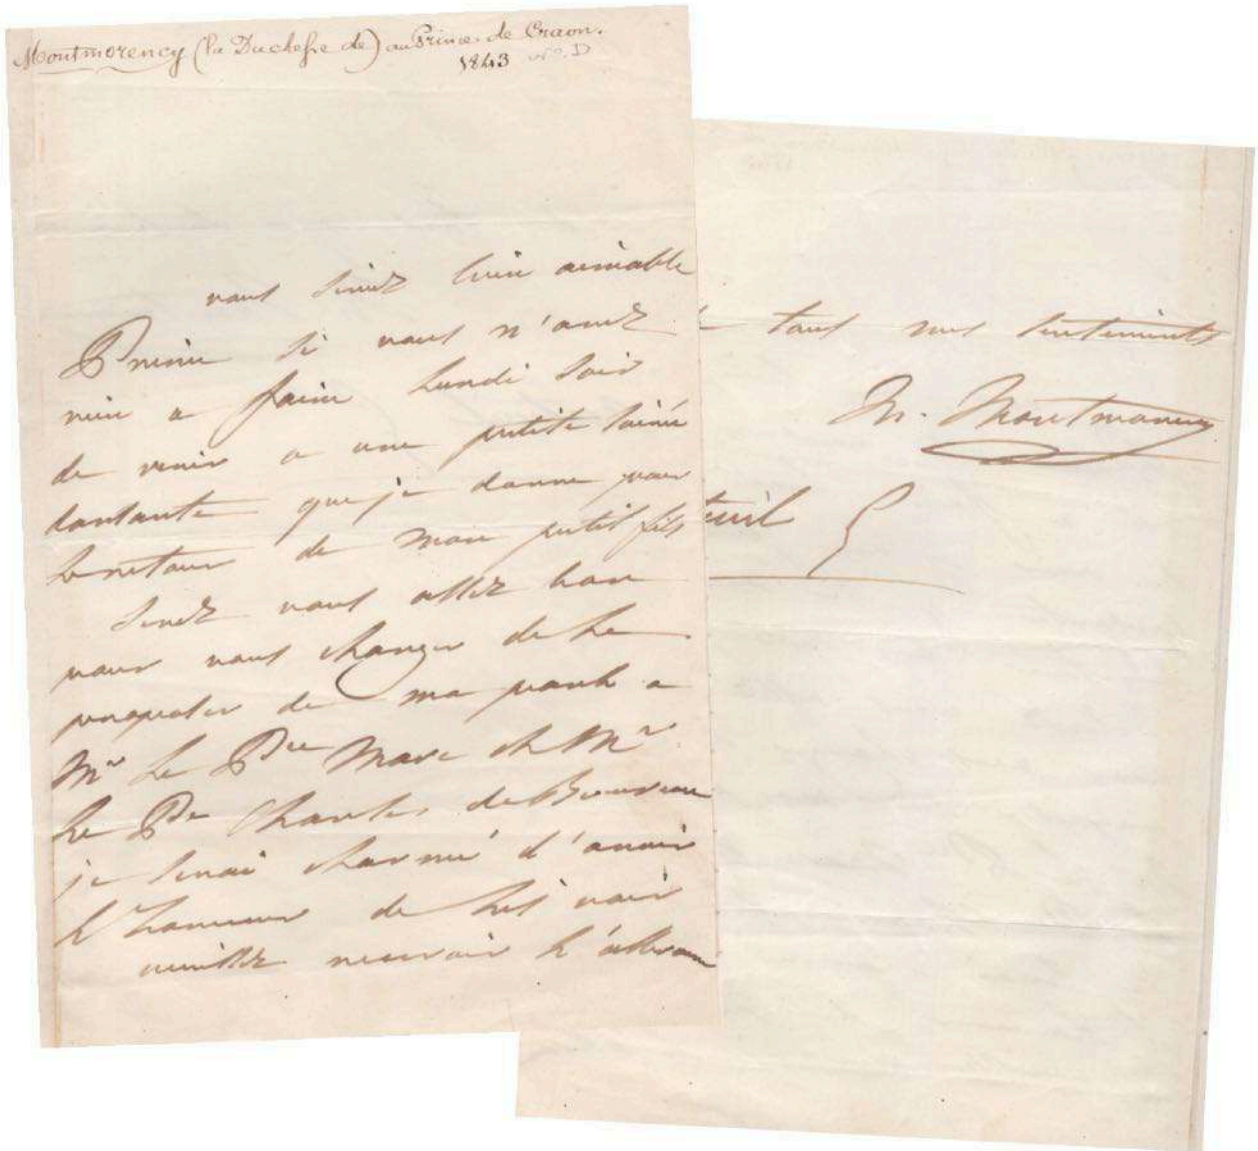 Montmorency (la Duchesse de) au Prince de Craon.
1843
vous seriez bien aimable
Prince si vous n'avez
rien a faire lundi soir
de venir a une petite soirée
dansante que je donne pour
le retour de mon petit fils
serez vous assez bon
pour vous charger de le
proposer de ma part a
Mr le Pce Marc et Mr
le Pce Charles de Beauvau
je serai charmé d'avoir
l'honneur de les voir
veuillez recevoir l'assurance
tous mes sentiments
M. Montmorency
teuil